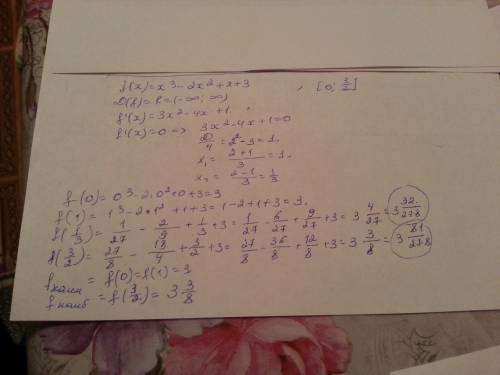 f(x)=x³-2x²+x+3 , [0; 3/2]
D(f)=R=(-∞; ∞)
f'(x)=3x²-4x+1.
f'(x)=0 => 3x²-4x+1=0
D/4=2²-3=1.
x₁=(2+1)/3=1.
x₂=(2-1)/3=1/3
f(0)=0³-2·0²+0+3=3
f(1)=1³-2*1²+1+3=1-2+1+3=3.
f(1/3)=1/27-2/9+1/3+3=1/27-6/27+9/27+3=3 4/27=3 32/278
f(3/2)=27/8-18/4+3/2+3=27/8-36/8+12/8+3=3 3/8=3 81/278
f наим=f(0)=f(1)=3
f наиб=f(3/2)=3 3/8